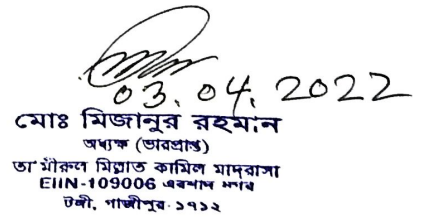 03.04.2022
মোঃ মিজানুর রহমান
অধ্যক্ষ (ভারপ্রাপ্ত)
তা'মীরুল মিল্লাত কামিল মাদরাসা
EIIN-109006 এরশাদ নগর
টঙ্গী, গাজীপুর-১৭১২